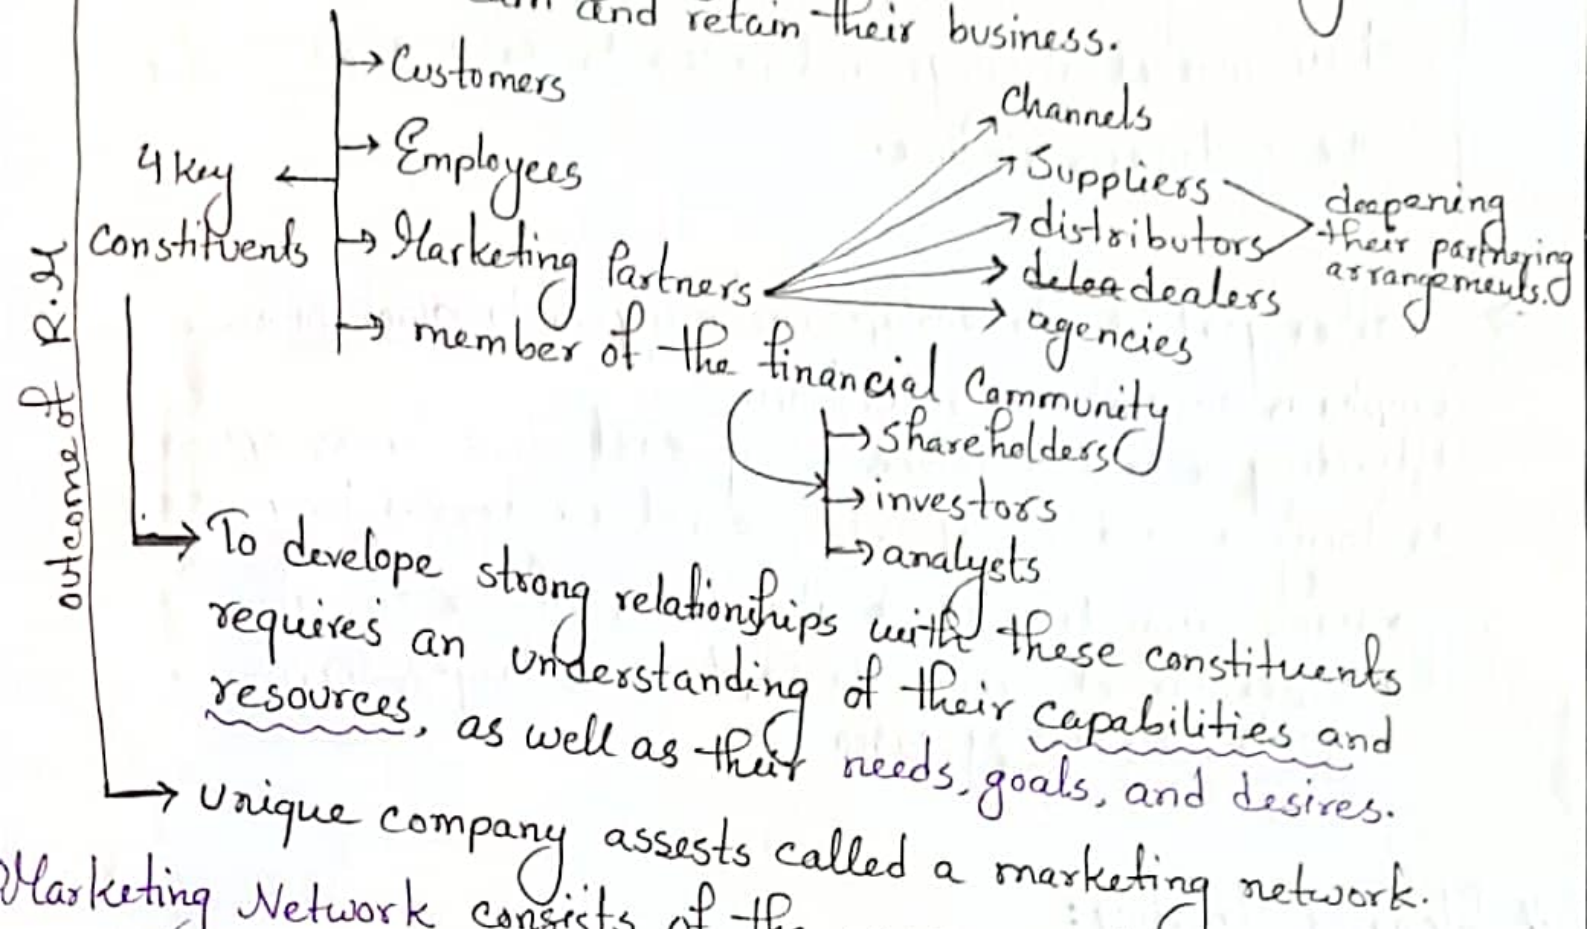 and retain their business.
Customers
Employees
4 key
constituents
Marketing Partners
Channels
Suppliers
distributors
dealers
agencies
deepening
their partnering
arrangements.
member of the financial Community
shareholders
investors
analysts
outcome of R.M
To develope strong relationships with these constituents
requires an understanding of their capabilities and
resources, as well as their needs, goals, and desires.
unique company assests called a marketing network.
Marketing Network consists of the